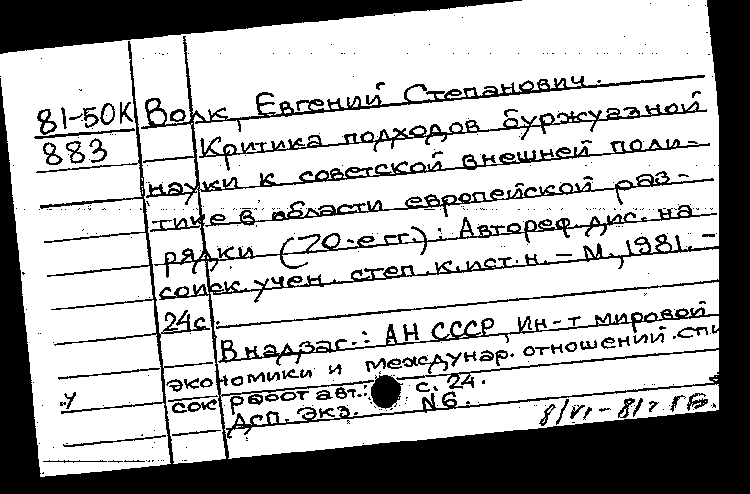 81-50К Волк, Евгений Степанович.
883 Критика подходов буржуазной
науки к советской внешней поли-
тике в области европейской раз-
рядки (70-е гг.): Автореф. дис. на
соиск. учен. степ. к.ист.н. – М., 1981. –
24с.
В надзаг.: АН СССР, Ин-т мировой
экономики и междунар. отношений. Спи
сок работ авт.: с. 24.
.У
Дсп. Экз. N6.